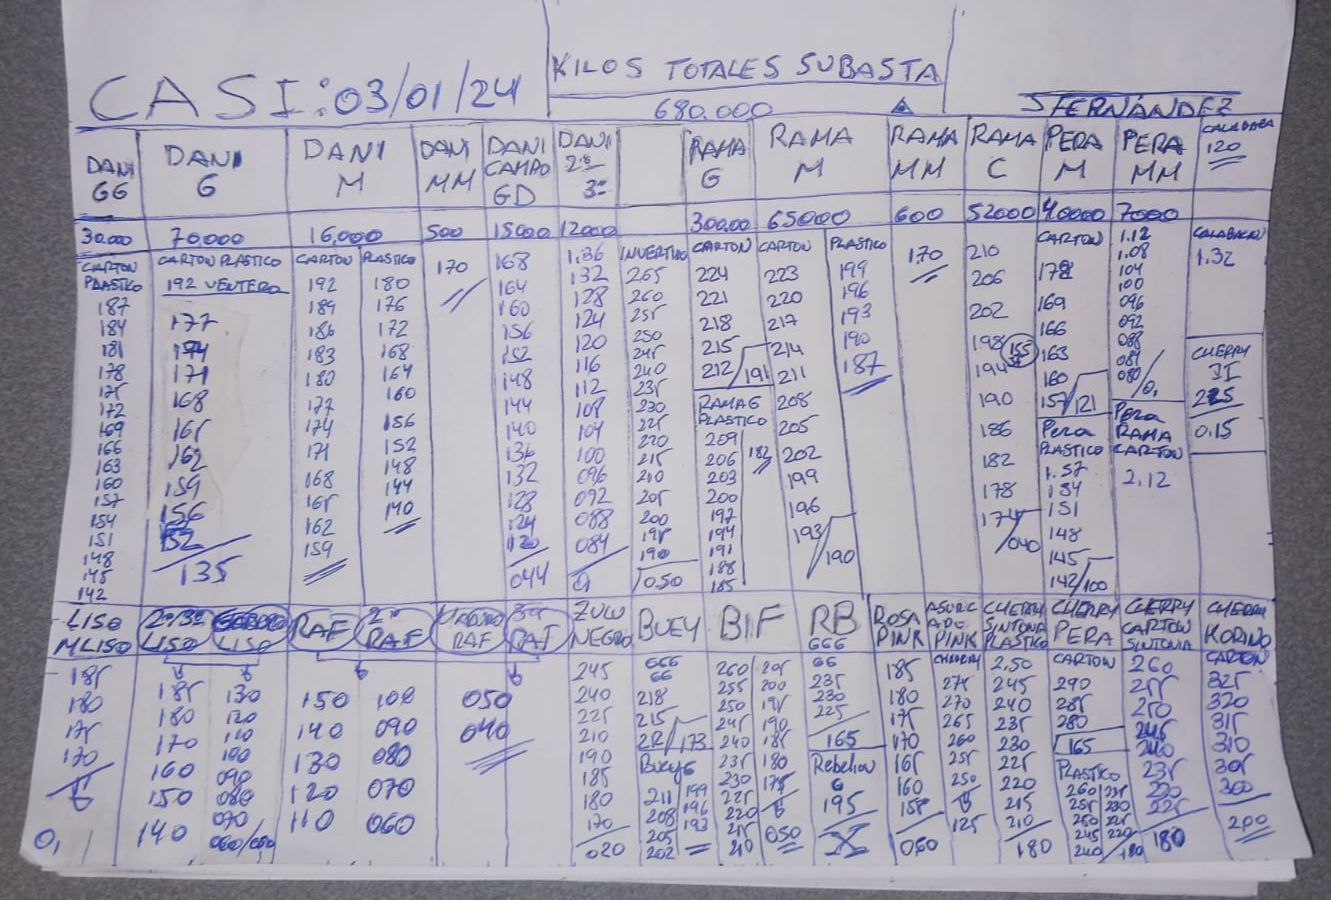 CASI: 03/01/24
KILOS TOTALES SUBASTA
680.000
J FERNÁNDEZ
DANI GG
DANI G
DANI M
DANI MM
DANI CAMPO GD
DANI 2ª 3ª
RAMA G
RAMA M
RAMA MM
RAMA C
PERA M
PERA MM
CALABAZA
120
30.000
70.000
16.000
500
15000
12000
300.00
65000
600
52000
40000
7000
CARTON
PLASTICO
187
184
181
178
175
172
169
166
163
160
157
154
151
148
145
142
CARTON PLASTICO
192 VENTERO
177
174
171
168
165
162
159
156
152
135
CARTON
192
189
186
183
180
177
174
171
168
165
162
159
PLASTICO
180
176
172
168
164
160
156
152
148
144
140
170
168
164
160
156
152
148
144
140
136
132
128
124
120
044
1.36
132
128
124
120
116
112
108
104
100
096
092
088
084
INVERTIDO
265
260
255
250
245
240
235
230
225
220
215
210
205
200
195
190
050
CARTON
224
221
218
215
212/191
RAMA G
PLASTICO
209
206
203
200
197
194
191
188
185
182
CARTON
223
220
217
214
211
208
205
202
199
196
193/190
PLASTICO
199
196
193
190
187
170
210
206
202
198
194
155
190
186
182
178
174/040
CARTON
172
169
166
163
160
157/121
Pera
PLASTICO
1.57
154
151
148
145
142/100
1.12
1.08
104
100
096
092
088
084
080/0,
Pera
RAMA
CARTON
2.12
CALABACIN
1.32
CHERRY
II
225
0.15
LISO
MLISO
185
180
175
170
0,
2ª/3ª
LISO
185
180
170
160
150
140
LISO
130
120
100
090
080
070
060/050
RAF
150
140
130
120
110
2ª
RAF
100
090
080
070
060
RAF
050
040
3ª
RAF
ZULU
NEGRO
245
240
225
210
190
185
180
170
020
BUEY
666
66
218
215
2R/173
BueyG
211
208
205
202
199
196
193
BIF
260
255
250
245
240
235
230
225
220
215
210
205
200
195
190
185
180
175
050
RB
666
66
235
230
225
165
Rebelion
G
195
X
ROSA
PINK
185
180
175
170
165
160
155
060
ASURC
ADO
PINK
CHERRY
275
270
265
260
255
250
125
CHERRY
SINTONIA
PLASTICO
2.50
245
240
235
230
225
220
215
210
180
CHERRY
PERA
CARTON
290
285
280
165
PLASTICO
260 235
255 230
250 225
245 220
240/180
CHERRY
CARTON
SINTONIA
260
255
250
245
240
235
230
225
180
CHERRY
KORINO
CARTON
325
320
315
310
305
300
200